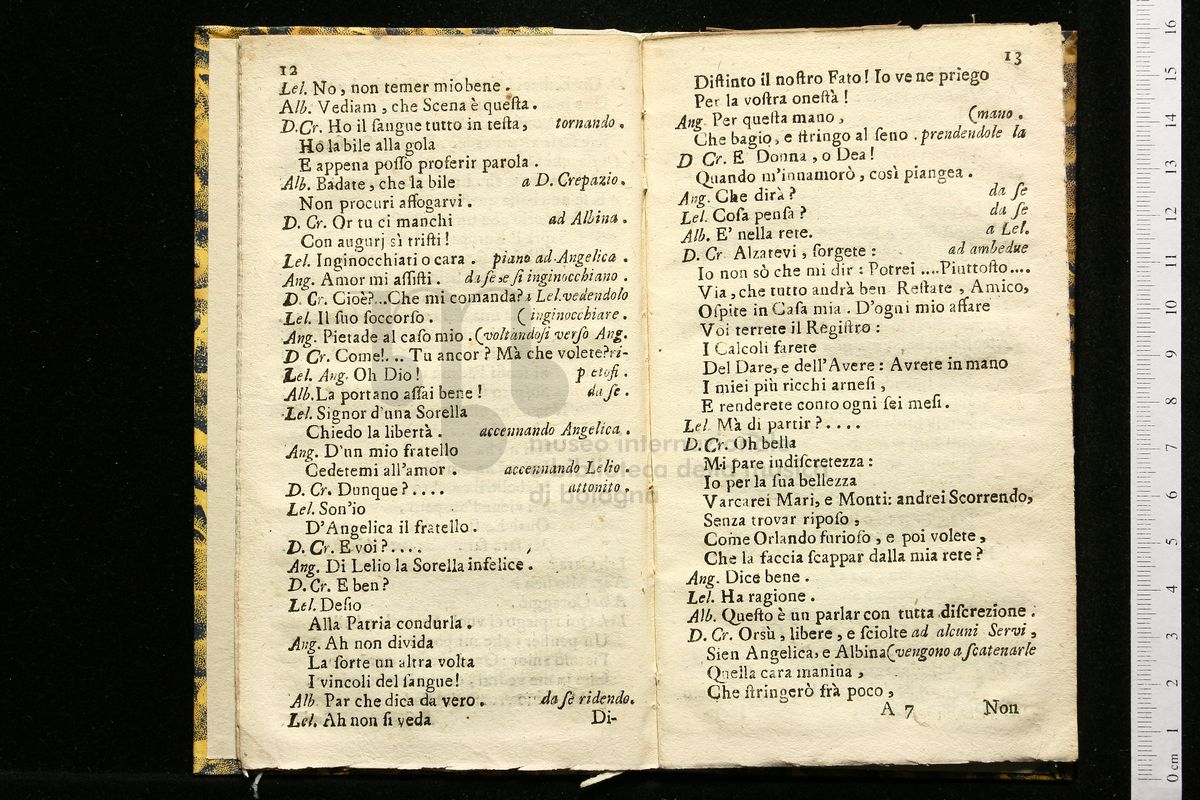 12
Lel. No, non temer mio bene.
Alb. Vediam, che Scena è queſta.
D.Cr. Ho il ſangue tutto in teſta, tornando.
Ho la bile alla gola
E appena poſſo proferir parola.
Alb. Badate, che la bile a D. Crepazio.
Non procuri affogarvi.
D. Cr. Or tu ci manchi ad Albina.
Con augurj sì triſti!
Lel. Inginocchiati o cara. piano ad Angelica.
Ang. Amor mi aſſiſti. da ſe, e ſi inginocchiano.
D. Cr. Cioè?...Che mi comanda? a Lel. vedendolo
Lel. Il ſuo ſoccorſo. (inginocchiare.
Ang. Pietade al caſo mio. (voltandoſi verſo Ang.
D Cr. Come!... Tu ancor? Mà che volete? ri-
Lel. Ang. Oh Dio! p etoſi.
Alb. La portano aſſai bene! da ſe.
Lel. Signor d'una Sorella
Chiedo la libertà. accennando Angelica.
Ang. D'un mio fratello
Cedetemi all'amor. accennando Lelio.
D. Cr. Dunque?.... attonito.
Lel. Son'io
D'Angelica il fratello.
D. Cr. E voi?....
Ang. Di Lelio la Sorella infelice.
D. Cr. E ben?
Lel. Deſio
Alla Patria condurla.
Ang. Ah non divida
La ſorte un altra volta
I vincoli del ſangue!
Alb. Par che dica da vero. da ſe ridendo.
Lel. Ah non ſi veda
Di-
13
Diſtinto il noſtro Fato! Io ve ne priego
Per la voſtra oneſtà!
Ang. Per queſta mano, (mano.
Che bagio, e ſtringo al ſeno. prendendole la
D Cr. E' Donna, o Dea!
Quando m'innamorò, così piangea.
Ang. Che dirà? da ſe
Lel. Coſa penſa? da ſe
Alb. E' nella rete. a Lel.
D. Cr. Alzatevi, ſorgete: ad ambedue
Io non sò che mi dir: Potrei ....Piuttoſto....
Via, che tutto andrà ben. Reſtate, Amico,
Oſpite in Caſa mia. D'ogni mio affare
Voi terrete il Regiſtro:
I Calcoli farete
Del Dare, e dell'Avere: Avrete in mano
I miei più ricchi arneſi,
E renderete conto ogni ſei meſi.
Lel. Mà di partir?....
D. Cr. Oh bella
Mi pare indiſcretezza:
Io per la ſua bellezza
Varcarei Mari, e Monti: andrei Scorrendo,
Senza trovar ripoſo,
Come Orlando furioſo, e poi volete,
Che la faccia ſcappar dalla mia rete?
Ang. Dice bene.
Lel. Ha ragione.
Alb. Queſto è un parlar con tutta diſcrezione.
D. Cr. Orsù, libere, e ſciolte ad alcuni Servi,
Sien Angelica, e Albina (vengono a ſcatenarle
Quella cara manina,
Che ſtringerò frà poco,
A 7 Non
museo internazionale
e biblioteca della musica
di bologna
0 cm 1 2 3 4 5 6 7 8 9 10 11 12 13 14 15 16